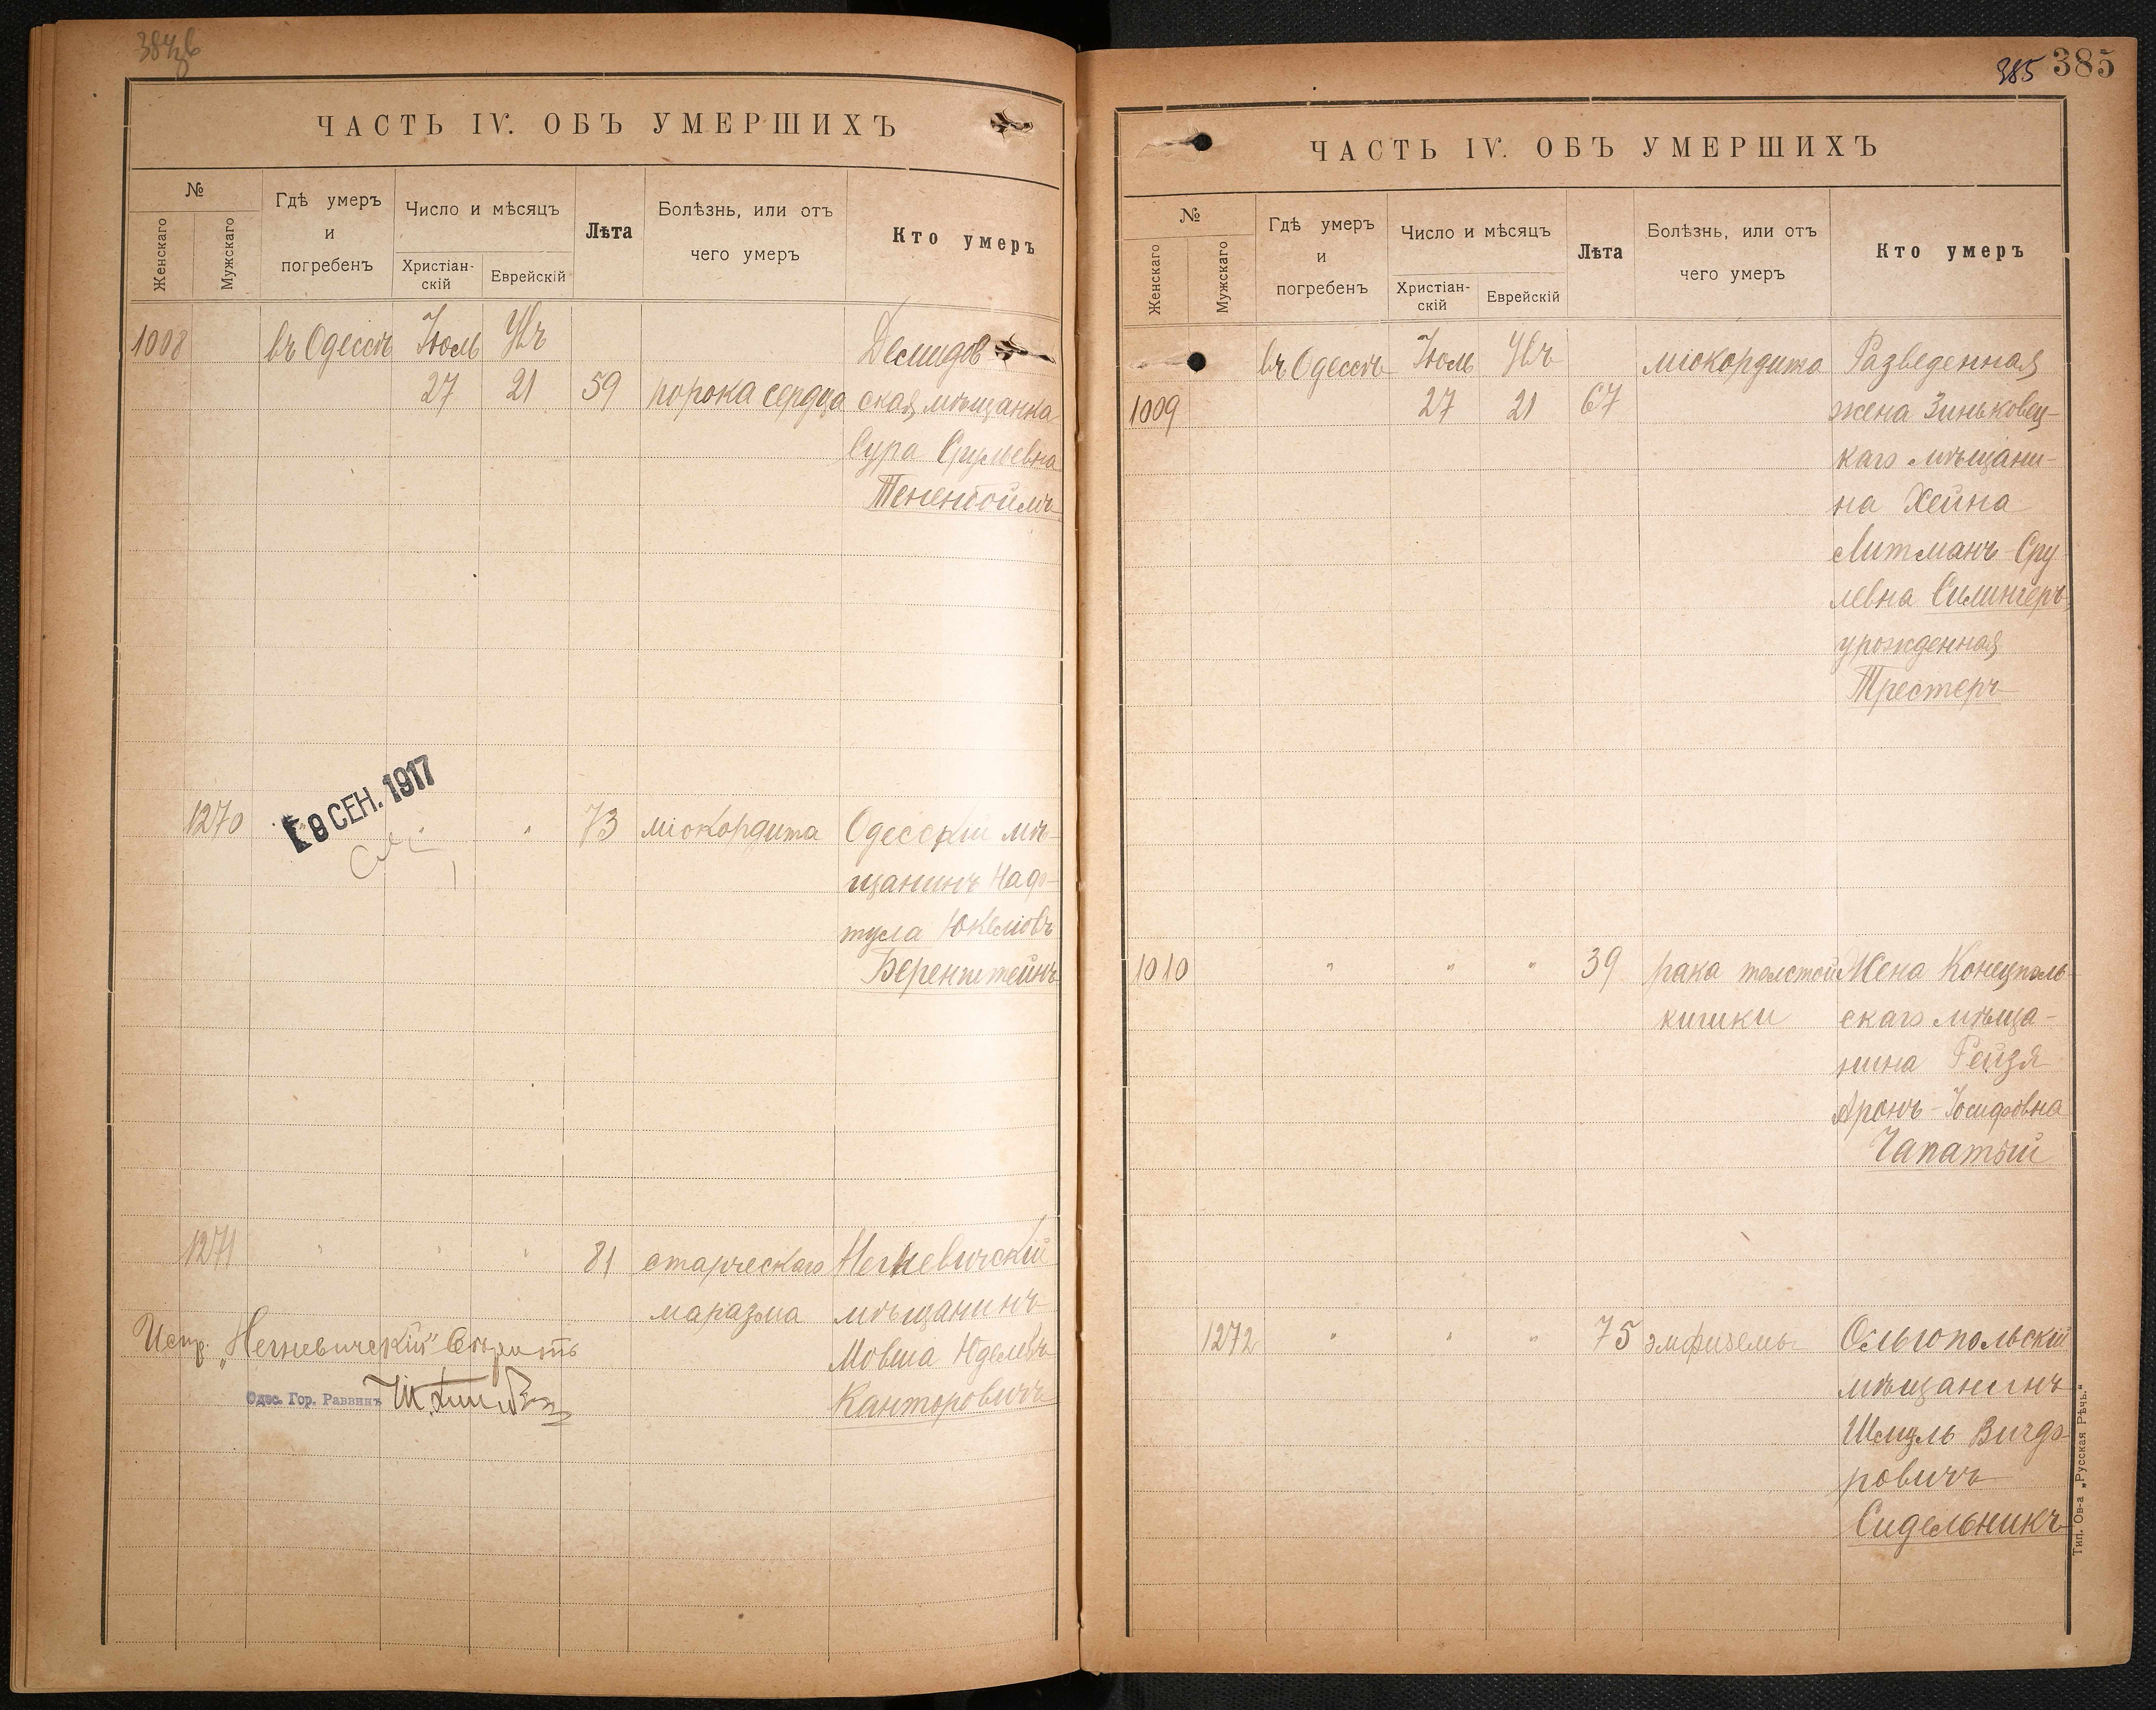 384б
ЧАСТЬ IV. ОБЪ УМЕРШИХЪ
№
Женскаго
Мужскаго
Гдѣ умеръ
и
погребенъ
Число и мѣсяцъ
Христіан-
скій
Еврейскій
Лѣта
Болѣзнь, или отъ
чего умеръ
Кто умеръ
1008 въ Одессѣ Іюль Увъ Демидов
27 21 59 порока сердца ская мѣщанка
Сура Срулевна
Тененбоймъ
9 СЕН. 1917
1270 " " 73 міокордита Одесскій мѣ-
щанинъ Наф-
тула Юкелiовъ
Беренштейнъ
1271 " " " 81 старческаго Негневичскій
маразма мѣщанинъ
Мовша Юделевъ
Канторовичъ
Испр. „Негневичскій" вѣрить
Одес. Гор. Раввинъ
385 385
ЧАСТЬ IV. ОБЪ УМЕРШИХЪ
№
Женскаго
Мужскаго
Гдѣ умеръ
и
погребенъ
Число и мѣсяцъ
Христіан-
скій
Еврейскій
Лѣта
Болѣзнь, или отъ
чего умеръ
Кто умеръ
въ Одессѣ Іюль Увъ міокордита Разведенная
1009 27 21 67 жена Зиньковец-
каго мѣщани-
на Хейна
Литманъ-Сру
левна Силингеръ
урожденная
Трестеръ
1010 " " " 39 рака толстой Жена Конецполь
кишки скаго мѣща-
нина Рейзя
Аронъ-Іосифовна
Чапатый
1272 " " " 75 эмфиземы Ольгопольскій
мѣщанинъ
Шмуль Вигдо-
ровичъ
Сидельникъ
Тип. Ов-а „Русская Рѣчь."